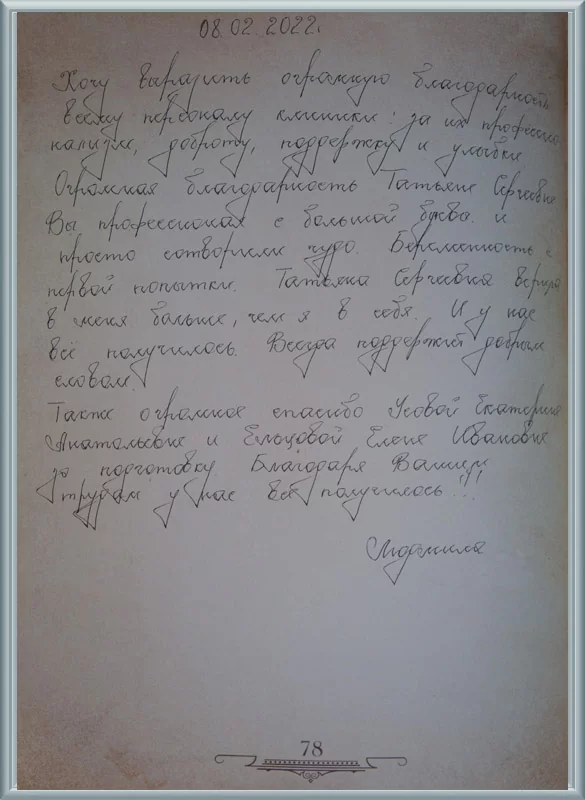 08.02.2022г.
Хочу выразить огромную благодарность
всему персоналу клиники: за их професио-
нализм, доброту, поддержку и улыбки.
Огромная благодарность Татьяне Сергеевне
Вы профессионал с большой буквы и
просто сотворили чудо. Беременность с
первой попытки. Татьяна Сергеевна верила
в меня больше, чем я в себя. И у нас
всё получилось. Всегда поддержит добрым
словом.
Также огромное спасибо Усовой Екатерине
Анатольевне и Ельцовой Елене Ивановне
за подготовку. Благодаря Вашим
трудам у нас всё получилось!!!
Людмила
78